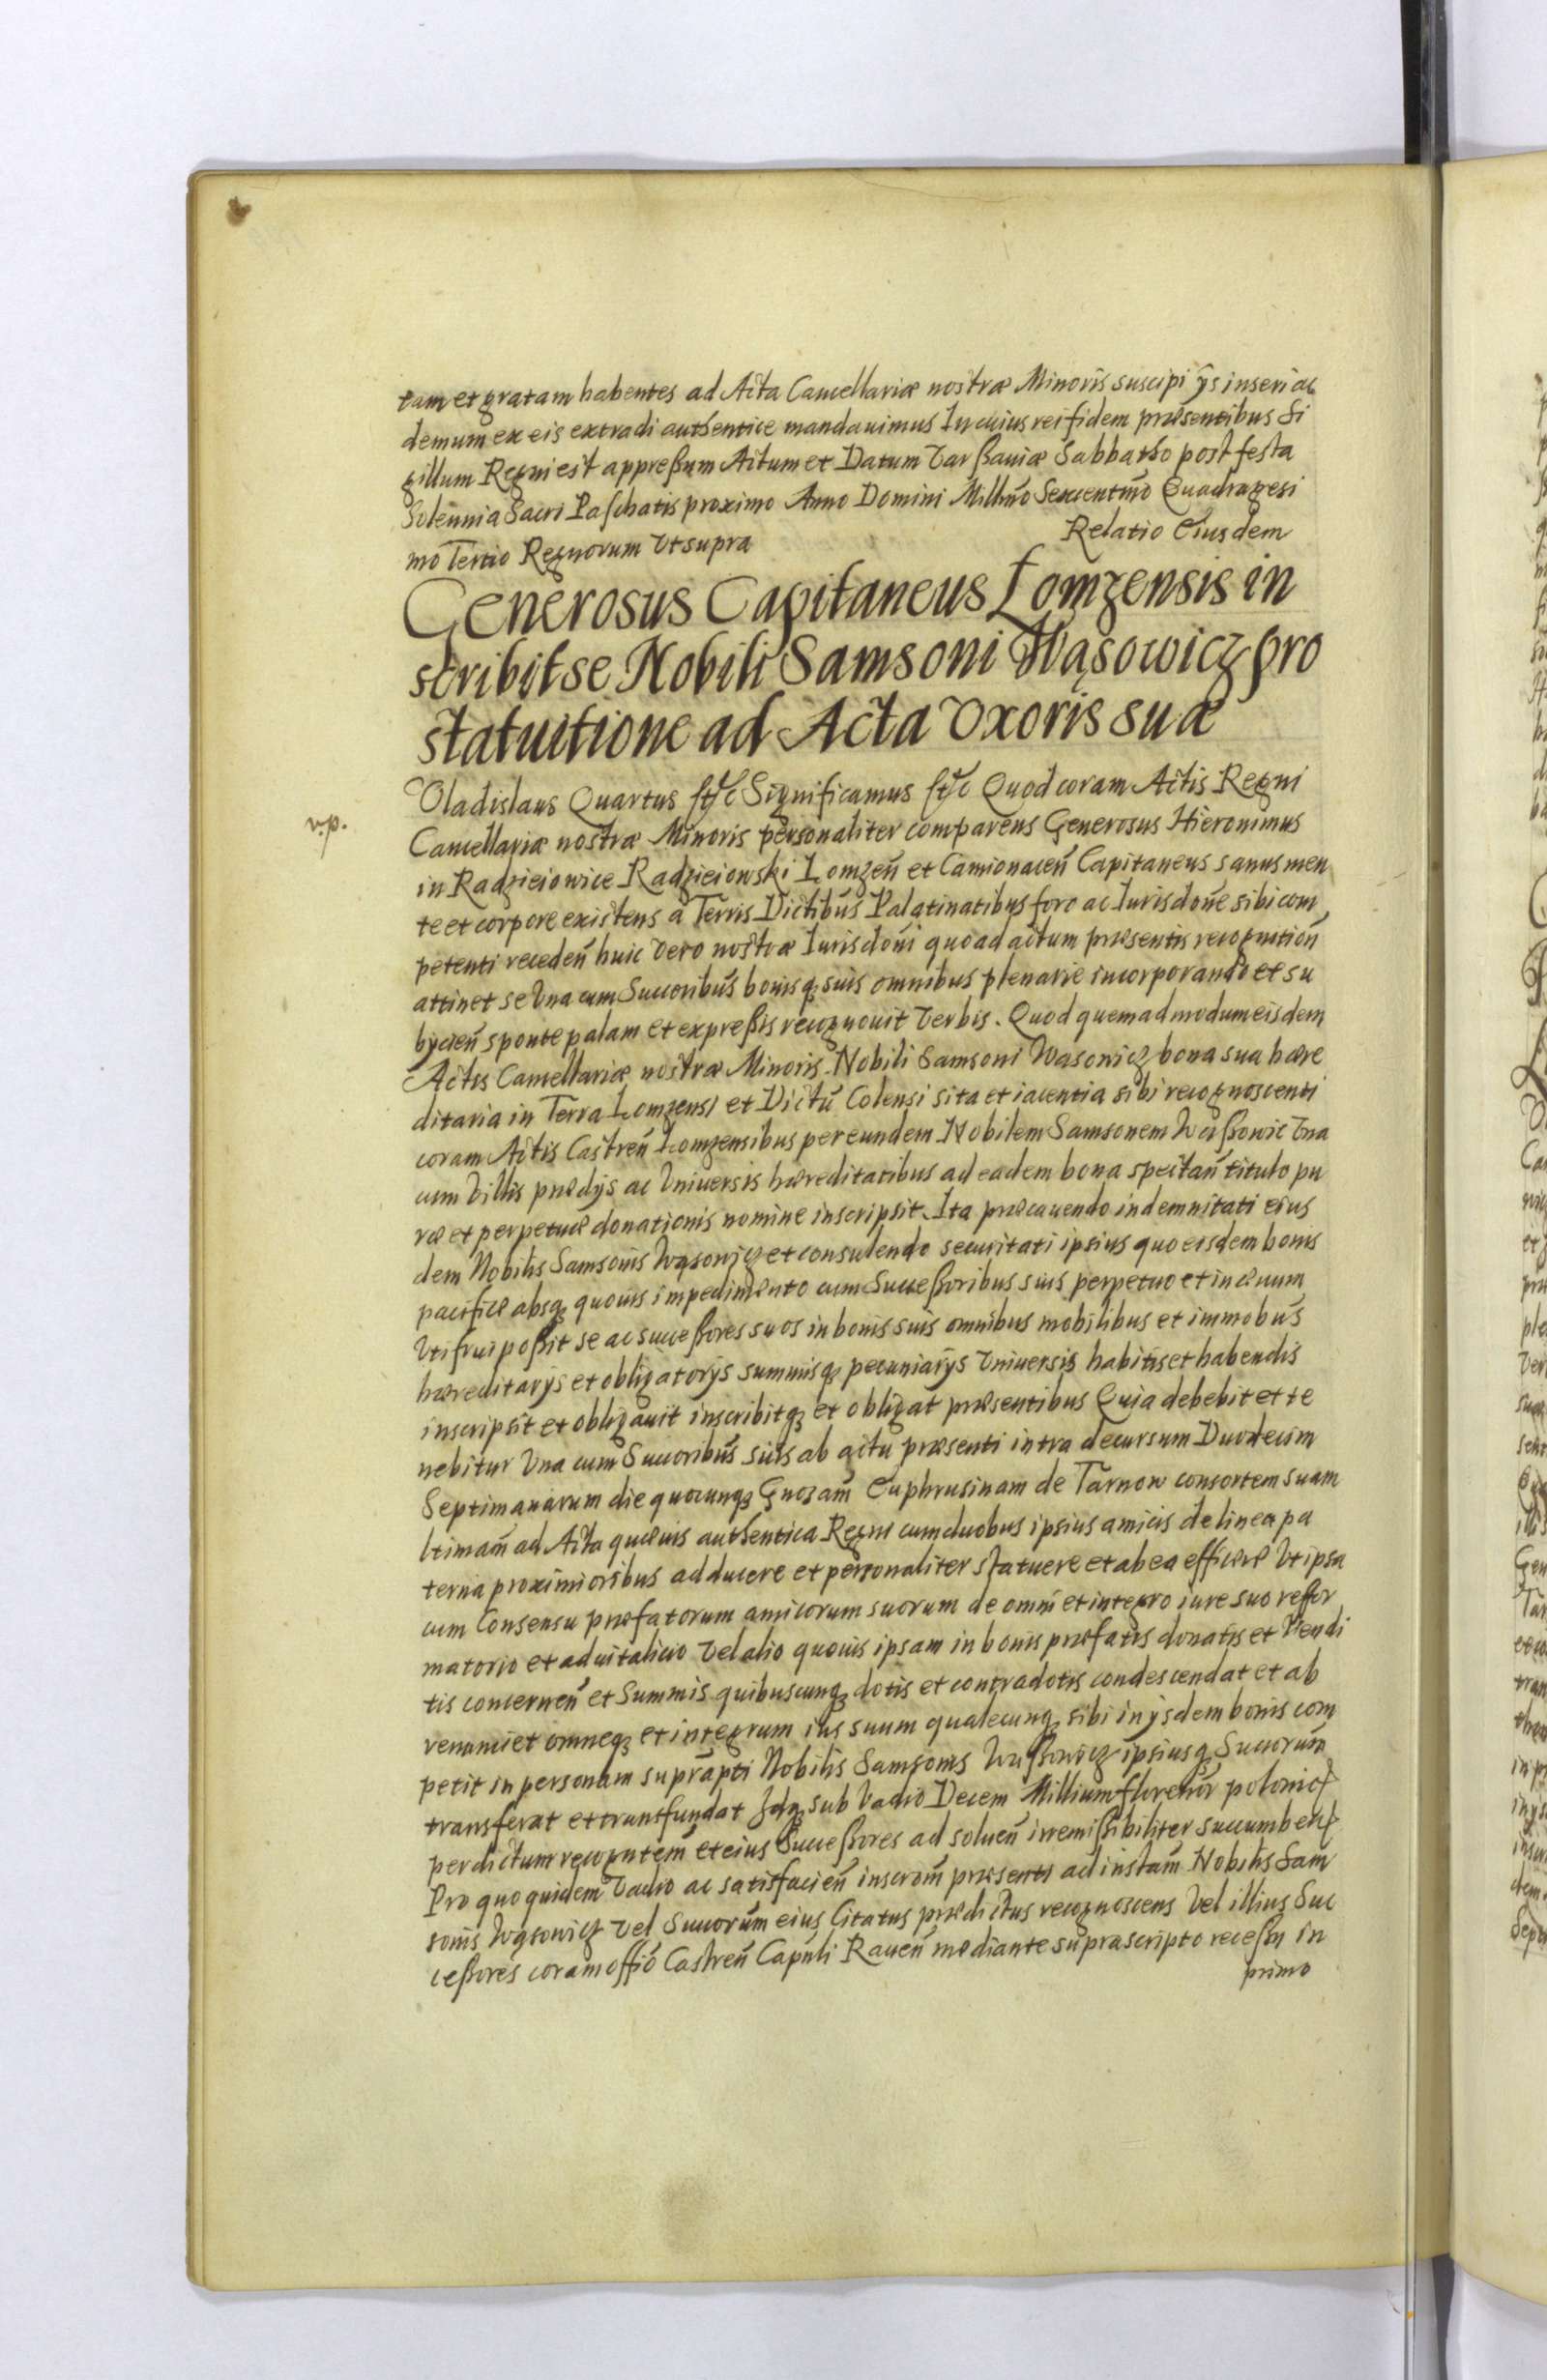 tam et gratam habentes ad Acta Cancellariæ nostræ Minoris suscipi ijs inseri ac
demum ex eis extradi authentice mandauimus In cuius rei fidem præsentibus Si
gillum Regni est appreßum Actum et Datum Varßauiæ Sabbatho post festa
Solennia Sacri Paschatis proximo Anno Domini Millmo Sexcentmo Quadragesi
mo Tertio Regnorum Vt supra
Relatio Eiusdem
Generosus Capitaneus Lomzensis in
scribit se Nobili Samsoni Wąsowicz pro
statuitione ad Acta Vxoris suæ
v.p.
Vladislaus Quartus etc Significamus etc Quod coram Actis Regni
Cancellariæ nostræ Minoris personaliter comparens Generosus Hieronimus
in Radzieiowice Radzieiowski Lomzen̄ et Camionacen̄ Capitaneus sanus men
te et corpore existens a Terris Dictibus Palatinatibus foro ac Iurisdone sibi com
petenti receden̄ huic vero nostræ Iurisdoni quo ad actum præsentis recognition̄
attinet se Vna cum Succoribus bonisq suis omnibus plenarie incorporando et su
bycien̄ sponte palam et expreßis recognouit verbis. Quod quemadmodum eisdem
Actis Cancellariæ nostræ Minoris Nobili Samsoni Wasowicz bona sua hære
ditaria in Terra Lomzensi et Dictu Colensi sita et iacentia sibi recognoscenti
coram Actis Castren̄ Lomzensibus per eundem Nobilem Samsonem Waßowic Vna
cum Villis prædijs ac Vniuersis hæreditatibus ad eadem bona spectan̄ titulo pu
ræ et perpetuæ donationis nomine inscripsit. Ita præcauendo indemnitati eius
dem Nobilis Samsonis Wąsowicz et consulendo securitati ipsius quo eisdem bonis
pacificæ absq quouis impedimento cum Succeßoribus suis perpetuo et in æuum
Vti frui poßit se ac succeßores suos in bonis suis omnibus mobilibus et immobus
hæreditarijs et obligatorijs summisq pecuniarijs Vniuersis habitis et habendis
inscripsit et obligauit inscribitq et obligat præsentibus Quia debebit et te
nebitur Vna cum Succoribus suis ab actu præsenti intra decursum Duodecim
Septimanarum die quocunq Gnosam Euphrusinam de Tarnow consortem suam
ltimam ad Acta quævis authentica Regni cum duobus ipsius amicis de linea pa
terna proximioribus adducere et personaliter statuere et ab ea efficere Vt ipsa
cum Consensu præfatorum amicorum suorum de omni et integro iure suo reffor
matorio et aduitalicio vel alio quouis ipsam in bonis præfatis donatis et Vendi
tis concernen̄ et Summis quibuscunq dotis et contradotis condescendat et ab
renunciet omneq et integrum ius suum qualecunq sibi in ijsdem bonis com
petit in personam suprapti Nobilis Samsonis Waßowicz ipsiusq Succorum
transferat et transfundat Idq sub Vadio Decem Millium florenor polonic
per dictum recognitem et eius Succeßores ad soluen̄ irremißibiliter succumben
Pro quo quidem Vadio ac satisfacien̄ inscrom præsenti ad instam Nobilis Sam
sonis Wąsowicz vel Succorum eius Citatus prædictus recognoscens Vel illius Suc
ceßores coram offio Castren̄ Capnli Rauen̄ mediante suprascripto receßu in
primo